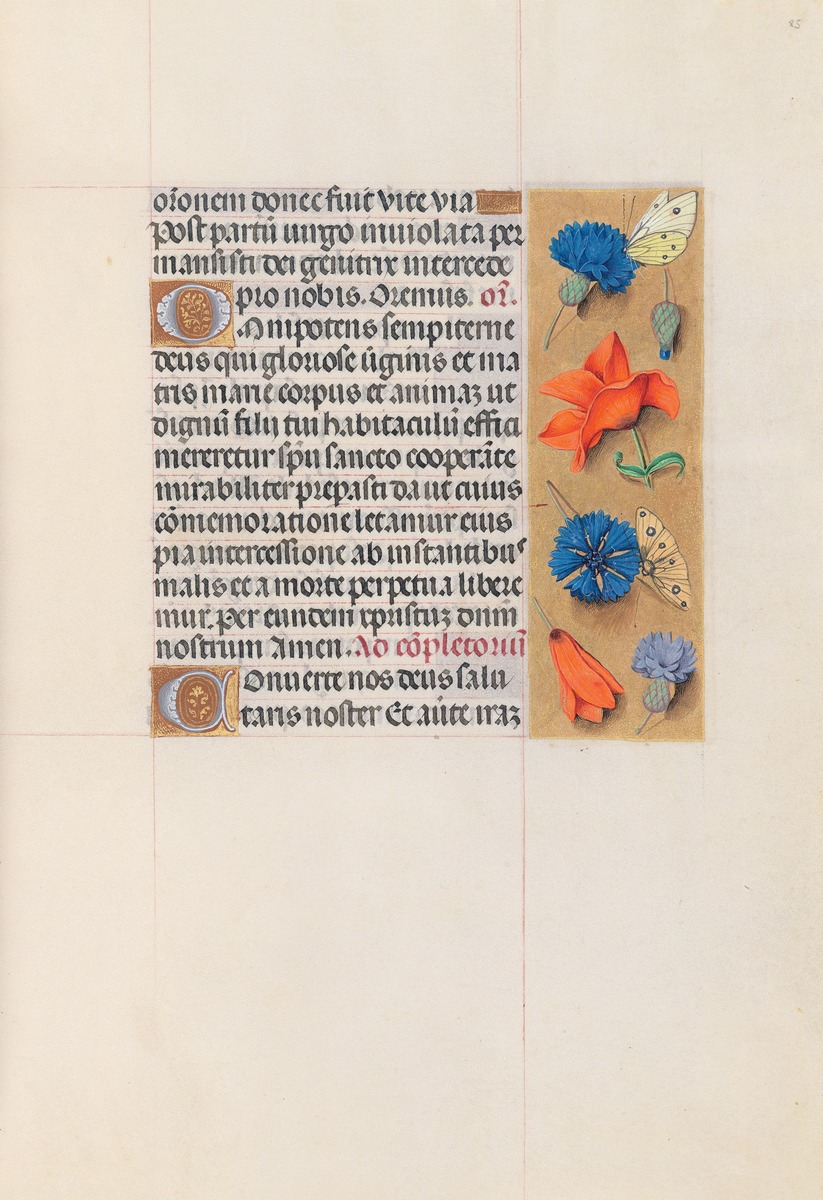 85
or̄onem donec fuit vite via
Post partū uirgo inuiolata per
mansisti dei genitrix intercede
pro nobis. Oremus. or̄.
Omnipotens sempiterne
deus qui gloriose ūginis et ma
tris marie corpus et animaꝫ ut
dignū filij tui habitaculū effici
mereretur spū sancto cooperāte
mirabiliter preparasti da ut cuius
cōmemoratione letamur eius
pia intercessione ab instantibus
malis et a morte perpetua libere
mur. Per eundem xpristuꝫ dnm̄
nostrum Amen. Ad cōpletoriū
Conuerte nos deus salu
taris noster Et aūte iraꝫ